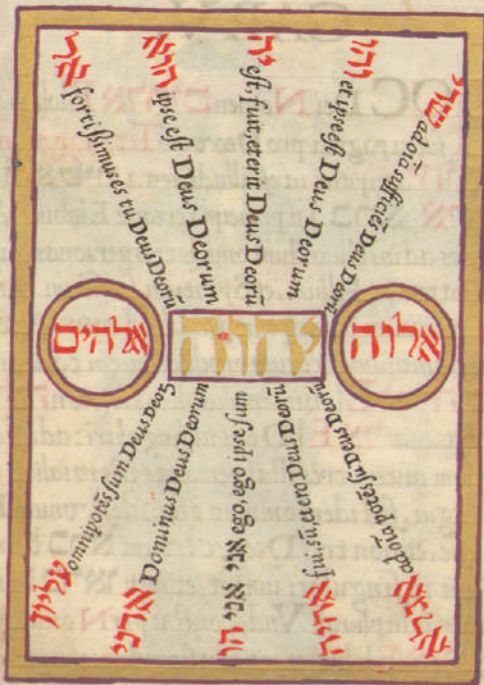 אל fortissimus es tu Deus Deorũ
הוא ipse est Deus Deorum
יה est, fuit, et erit Deus Deorũ
והו et ipse est Deus Deorum
שדי ad oĩa sufficiẽs Deus Deorũ
אלהים
יהוה
אלוה
עליון omnipotẽs sum Deus Deorꝝ
אדני Dominus Deus Deorum
הו אני אני ego ego ipse sum
אהיה fui, sũ, et ero Deus Deorũ
ad oĩa potẽs sũ Deus Deorũ